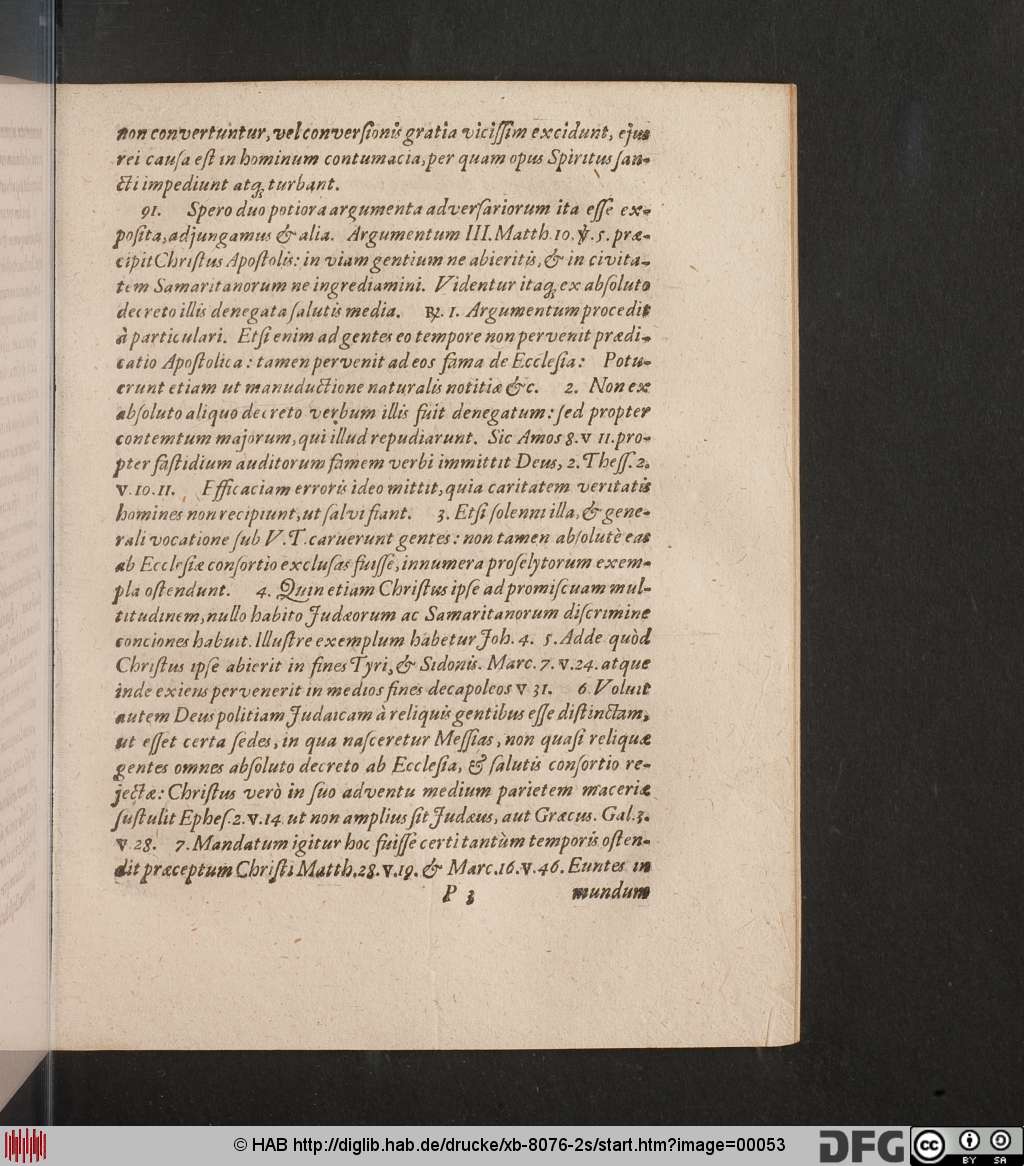 non convertuntur, vel conversionis gratia vicissim excidunt, ejus
rei causa est in hominum contumacia, per quam opus Spiritus san-
cti impediunt atq; turbant.
91. Spero duo potiora argumenta adversariorum ita esse ex-
posita, adjungamus & alia. Argumentum III. Matth. 10. ℣. 5. præ-
cipit Christus Apostolis: in viam gentium ne abieritis, & in civita-
tem Samaritanorum ne ingrediamini. Videntur itaq; ex absoluto
decreto illis denegata salutis media. ℞. 1. Argumentum procedit
à particulari. Etsi enim ad gentes eo tempore non pervenit prædi-
catio Apostolica: tamen pervenit ad eos fama de Ecclesia: Potu-
erunt etiam ut manuductione naturalis notitiæ &c. 2. Non ex
absoluto aliquo decreto verbum illis fuit denegatum: sed propter
contemtum majorum, qui illud repudiarunt. Sic Amos 8. v 11. pro-
pter fastidium auditorum famem verbi immittit Deus, 2. Thess. 2.
v. 10. 11. Efficaciam erroris ideo mittit, quia caritatem veritatis
homines non recipiunt, ut salvi fiant. 3. Etsi solenni illa, & gene-
rali vocatione sub V. T. caruerunt gentes: non tamen absolutè eas
ab Ecclesiæ consortio exclusas fuisse, innumera proselytorum exem-
pla ostendunt. 4. Quin etiam Christus ipse ad promiscuam mul-
titudinem, nullo habito Judæorum ac Samaritanorum discrimine
conciones habuit. Illustre exemplum habetur Joh. 4. 5. Adde quòd
Christus ipse abierit in fines Tyri, & Sidonis. Marc. 7. v. 24. atque
inde exiens pervenerit in medios fines decapoleos v 31. 6. Voluit
autem Deus politiam Judaicam à reliquis gentibus esse distinctam,
ut esset certa sedes, in qua nasceretur Messias, non quasi reliquæ
gentes omnes absoluto decreto ab Ecclesia, & salutis consortio re-
jectæ: Christus verò in suo adventu medium parietem maceriæ
sustulit Ephes. 2. v. 14 ut non amplius sit Judæus, aut Græcus. Gal. 3.
v 28. 7. Mandatum igitur hoc fuisse certi tantùm temporis osten-
dit præceptum Christi Matth. 28. v. 19. & Marc. 16. v. 46. Euntes in
P 3 mundum
© HAB http://diglib.hab.de/drucke/xb-8076-2s/start.htm?image=00053
DFG cc BY SA